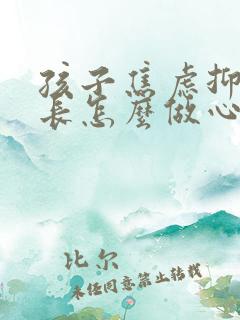 孩子焦虑抑
长怎么做心
比尔
未经同意禁止转载